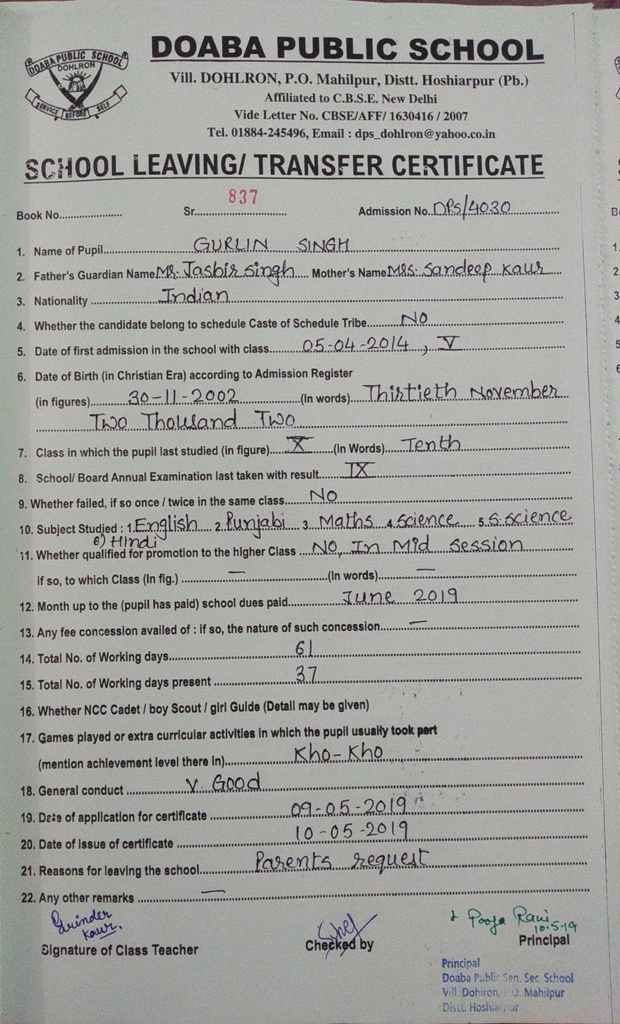 DOABA PUBLIC SCHOOL
DOHLRON
SERVICE BEFORE SELF
DOABA PUBLIC SCHOOL
Vill. DOHLRON, P.O. Mahilpur, Distt. Hoshiarpur (Pb.)
Affiliated to C.B.S.E. New Delhi
Vide Letter No. CBSE/AFF/ 1630416 / 2007
Tel. 01884-245496, Email : dps_dohlron@yahoo.co.in
SCHOOL LEAVING/ TRANSFER CERTIFICATE
Book No..................... Sr. 837 Admission No. DPS/4030
1. Name of Pupil GURLIN SINGH
2. Father's Guardian Name Mr. Jasbir Singh Mother's Name Mrs. Sandeep Kaur
3. Nationality Indian
4. Whether the candidate belong to schedule Caste of Schedule Tribe NO
5. Date of first admission in the school with class 05-04-2014, V
6. Date of Birth (in Christian Era) according to Admission Register
(in figures) 30-11-2002 (In words) Thirtieth November
Two Thousand Two
7. Class in which the pupil last studied (in figure) X (In Words) Tenth
8. School/ Board Annual Examination last taken with result IX
9. Whether failed, if so once / twice in the same class NO
10. Subject Studied : 1. English 2. Punjabi 3. Maths 4. Science 5. S. Science
6) Hindi
11. Whether qualified for promotion to the higher Class NO, In Mid Session
if so, to which Class (In fig.) — (In words) —
12. Month up to the (pupil has paid) school dues paid June 2019
13. Any fee concession availed of : if so, the nature of such concession —
14. Total No. of Working days 61
15. Total No. of Working days present 37
16. Whether NCC Cadet / boy Scout / girl Guide (Detail may be given)
17. Games played or extra curricular activities in which the pupil usually took part
(mention achievement level there in) Kho-Kho
18. General conduct V. Good
19. Date of application for certificate 09-05-2019
20. Date of issue of certificate 10-05-2019
21. Reasons for leaving the school Parents request
22. Any other remarks —
Kaur. Pooja Rani
10-5-19
Signature of Class Teacher Checked by Principal
Principal
Doaba Public Sen. Sec. School
Vill. Dohlron, P.O. Mahilpur
Distt. Hoshiarpur